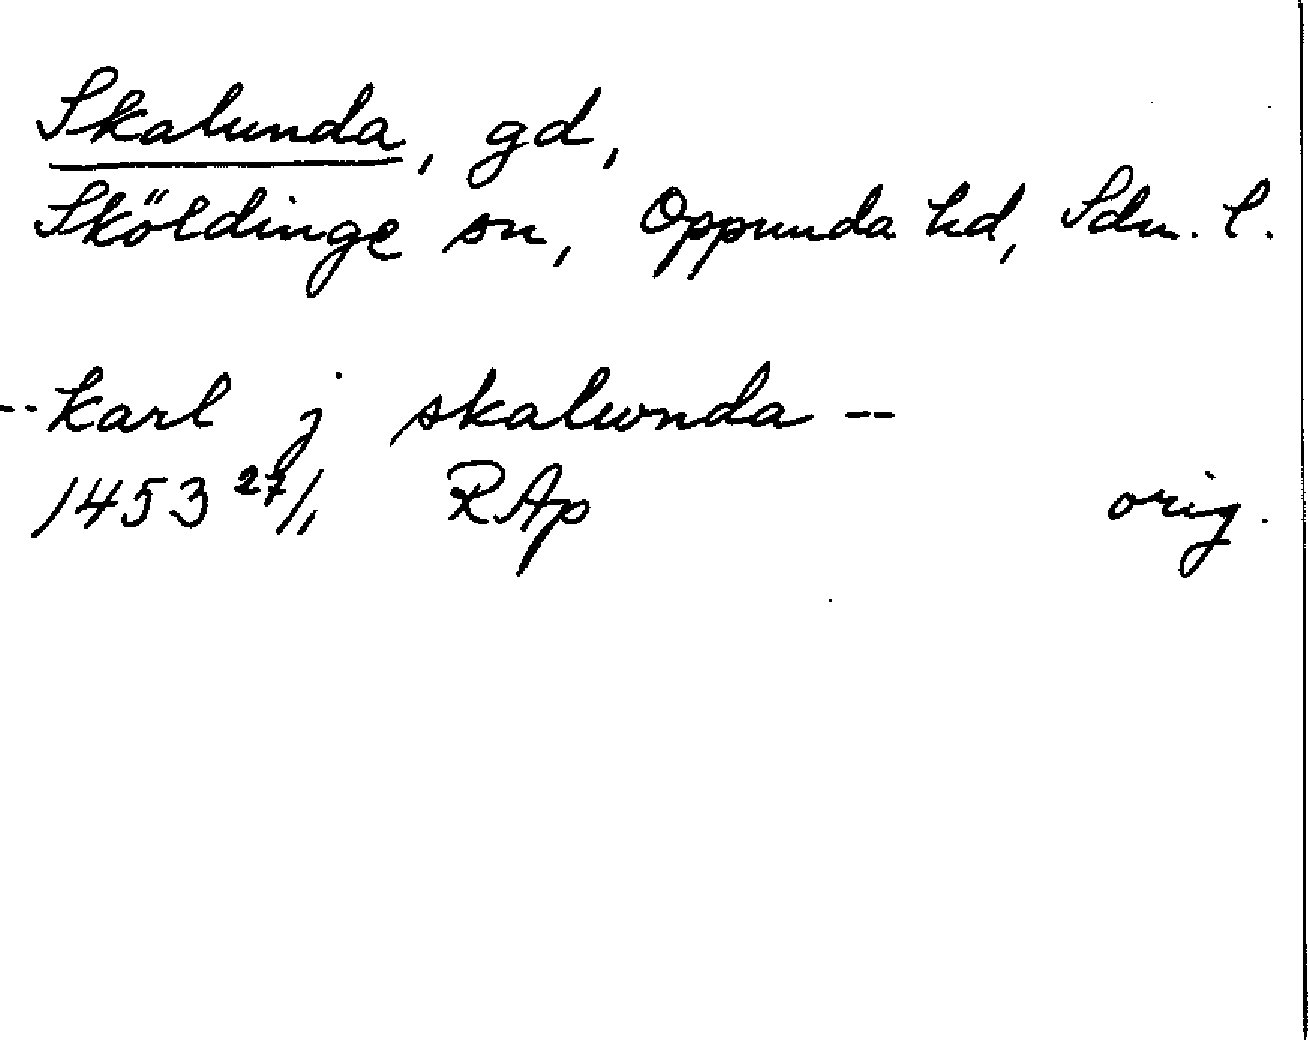 Skalunda, gd,
Sköldinge sn, Oppunda hd, Sdm. l.
-- karl j skalwnda --
1453 27/1 RAp orig.